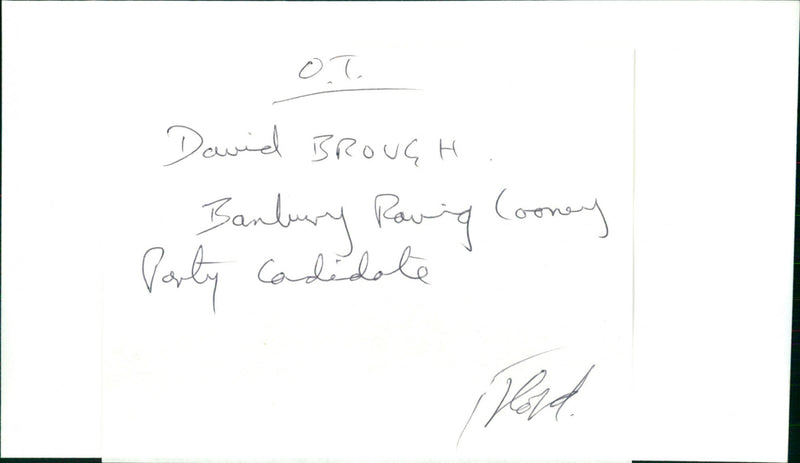 O.T.
David BROUGH.
Banbury Raving Looney
Party Cadidate